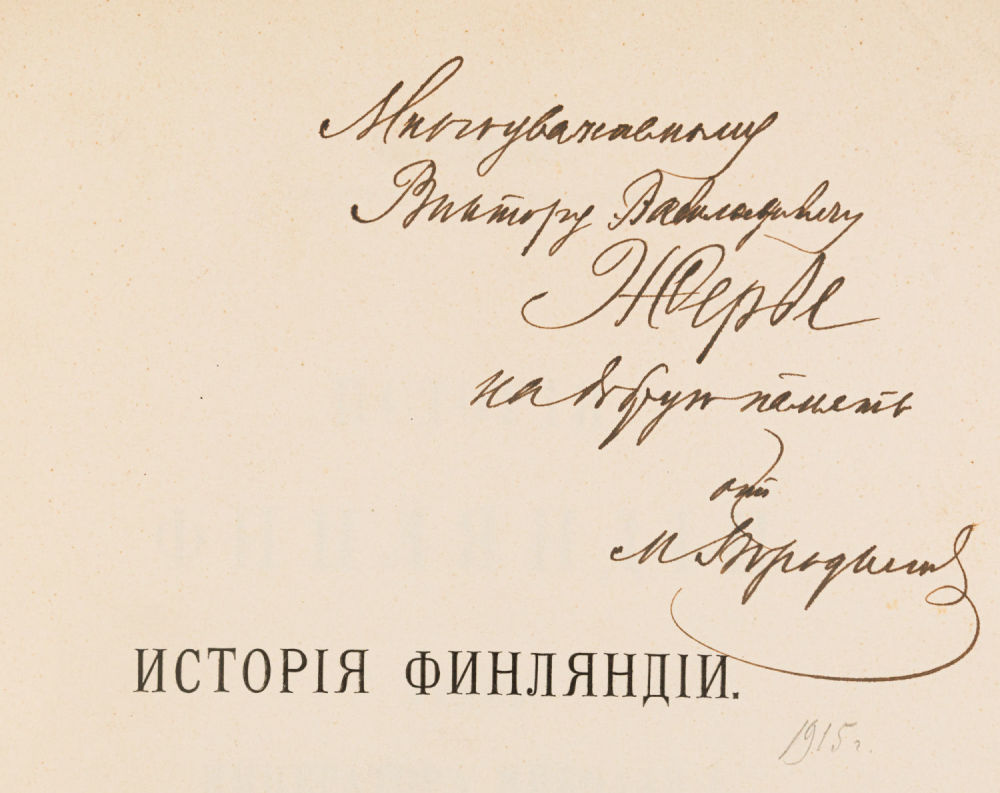 Многоуважаемому
Виктору
Жерве
на добрую память
отъ
М Бородкинъ
ИСТОРІЯ ФИНЛЯНДІИ.
1915 г.